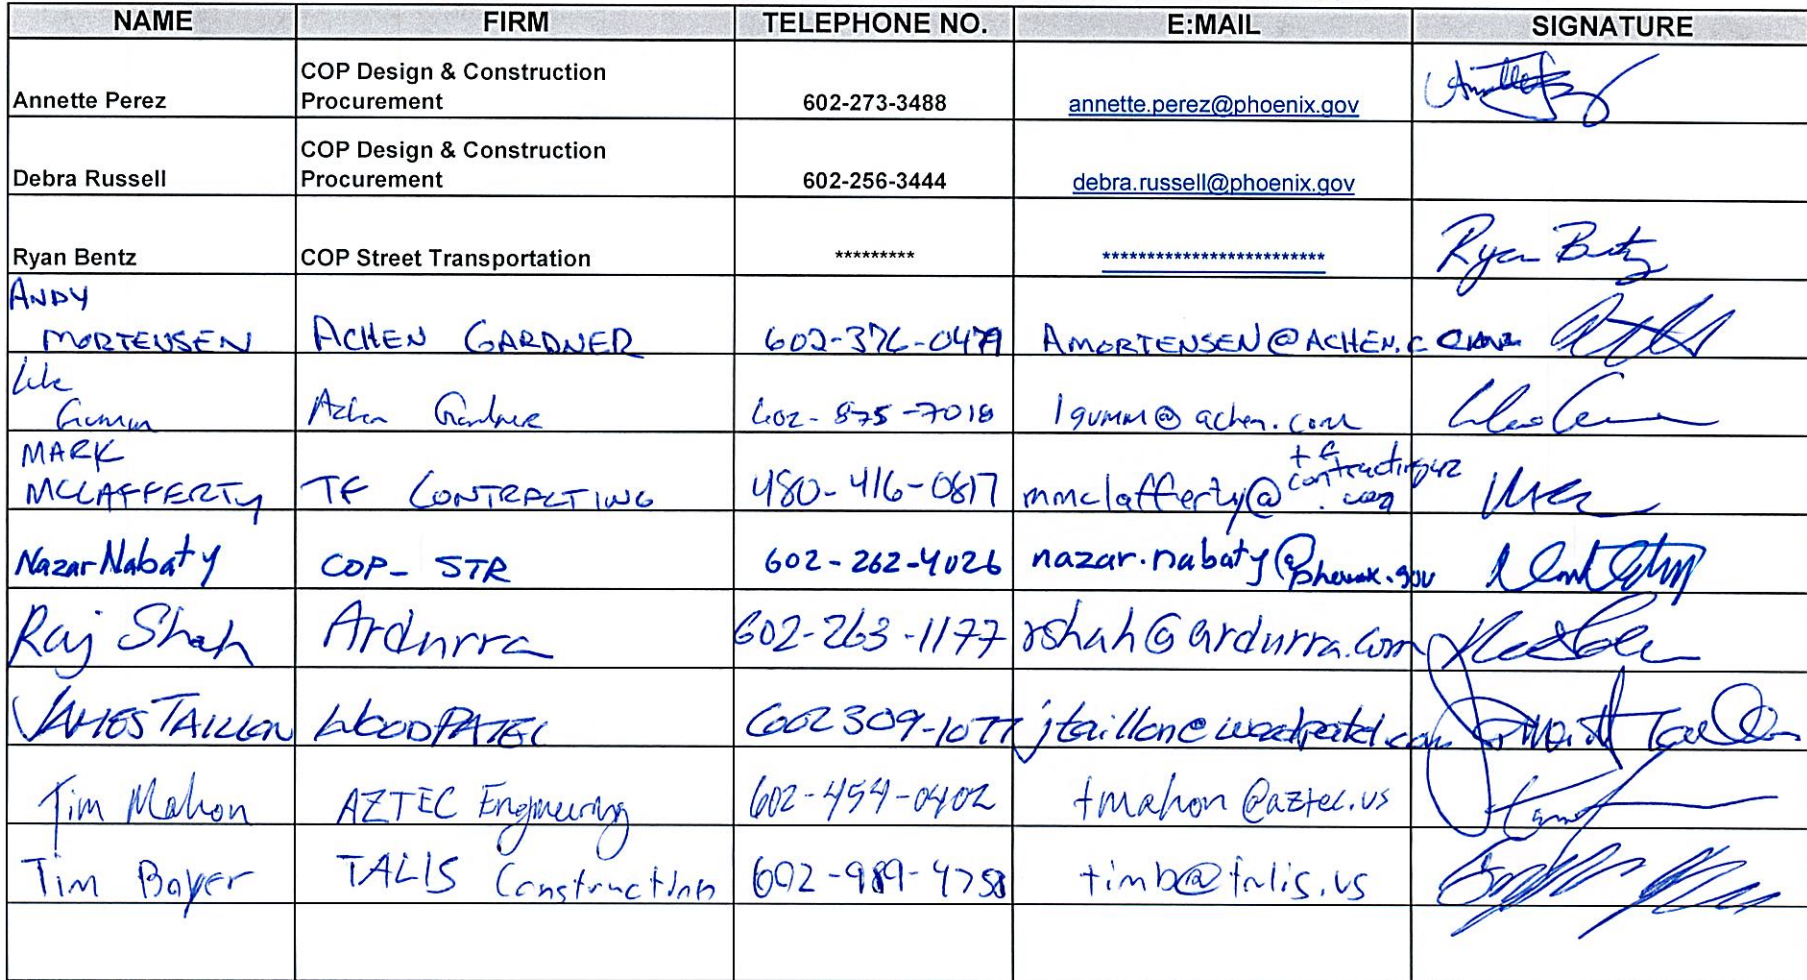 NAME FIRM TELEPHONE NO. E:MAIL SIGNATURE
COP Design & Construction
Annette Perez Procurement 602-273-3488 annette.perez@phoenix.gov
COP Design & Construction
Debra Russell Procurement 602-256-3444 debra.russell@phoenix.gov
Ryan Bentz COP Street Transportation ********* ************************* Ryan Bentz
ANDY
MORTENSEN ACHEN GARDNER 602-376-0479 AMORTENSEN@ACHEN.C
Luke
Gumm Achen Gardner 602-875-7018 lgumm@achen.com
MARK
MCLAFFERTY TF CONTRACTING 480-416-0817 mmclafferty@
Nazar Nabaty COP- STR 602-262-4026 nazar.nabaty@phoenix.gov
Raj Shah Ardurra 602-263-1177 rshah@ardurra.com
JAMES TAILLON WOODPATEL 602309-1077 jtaillon@woodpatel.com
Tim Mahon AZTEC Engineering 602-454-0402 tmahon@aztec.us
Tim Bayer TALIS Construction 602-989-4758 timb@talis.us